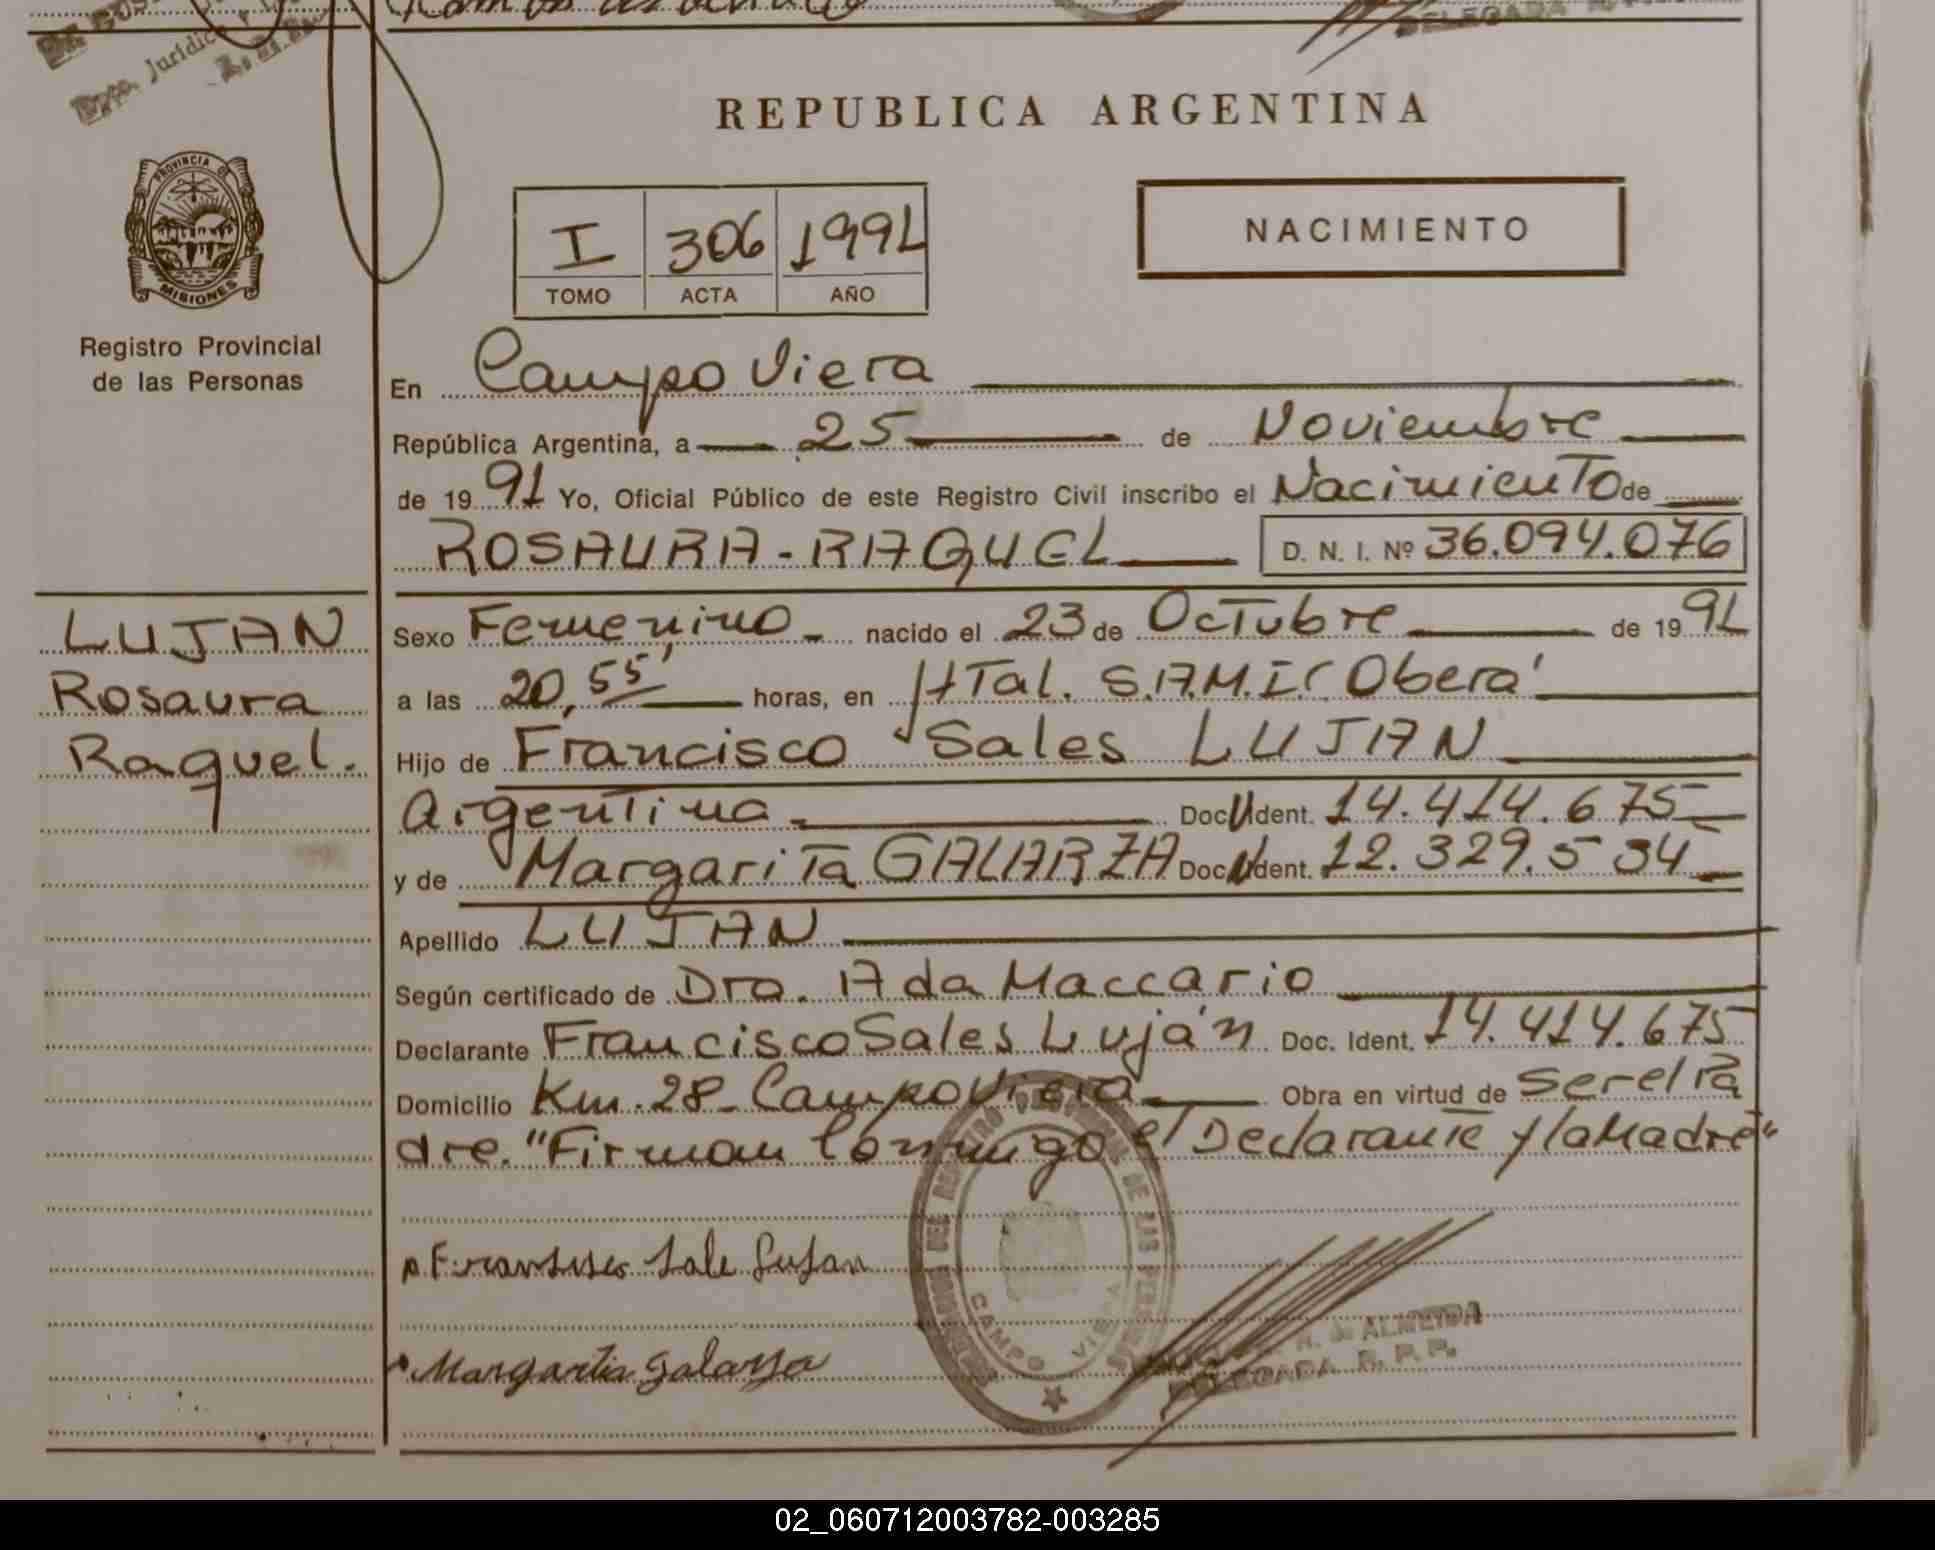 Dpto. Jurídic
DELEGADA
REPUBLICA ARGENTINA
PROVINCIA DE
MISIONES
Registro Provincial
de las Personas
I 306 1991
TOMO ACTA AÑO
NACIMIENTO
En Campo Viera
República Argentina, a 25 de Noviembre
de 1991 Yo, Oficial Público de este Registro Civil inscribo el Nacimiento de
ROSAURA-RAQUEL D. N. I. Nº 36.094.076
LUJAN
Rosaura
Raquel.
Sexo Femenino nacido el 23 de Octubre de 1991
a las 20,55' horas, en HTal. S.A.M.I.C Oberá
Hijo de Francisco Sales LUJAN
Argentina Doc. Ident. 14.414.675
y de Margarita GALARZA Doc. Ident. 12.329.534
Apellido LUJAN
Según certificado de Dra. Ada Maccario
Declarante Francisco Sales Luján Doc. Ident. 14.414.675
Domicilio Km. 28- Campo Viera Obra en virtud de Ser el Pa
dre. "Firman conmigo el Declarante y la Madre"
CAMPO VIERA
DE LAS
Sale Lujan
Margarita Galarza
ALMEIDA
DELEGADA R. P. P.
02_060712003782-003285